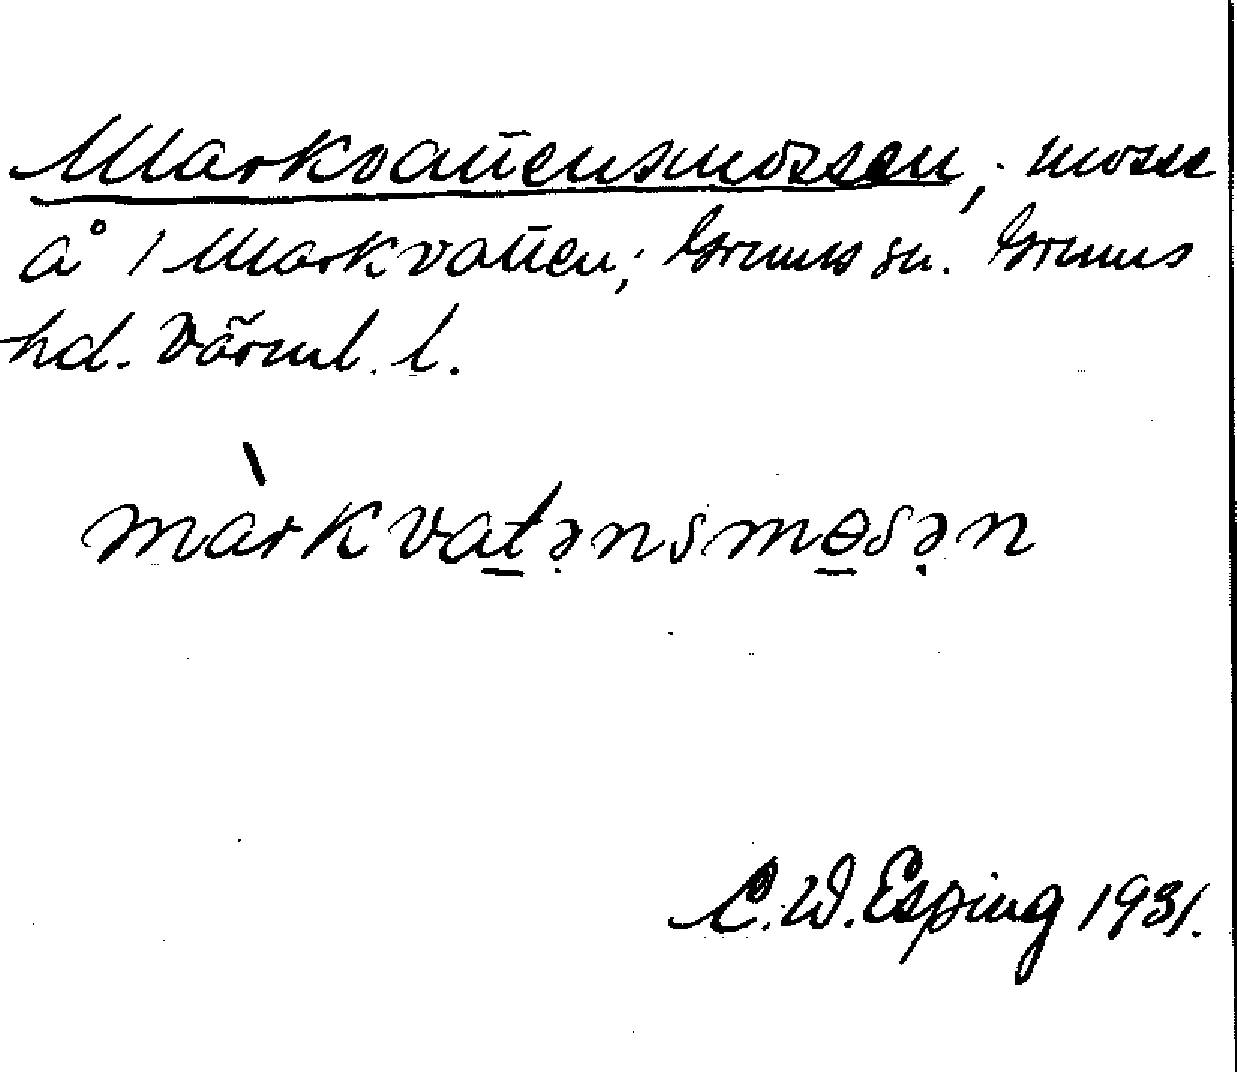 Markvattensmossen, mosse
å 1 Markvatten; Grums sn. Grums
hd. Värml. l.
màrkvat̲ənsmɵ̲sən
C.W. Esping 1931.